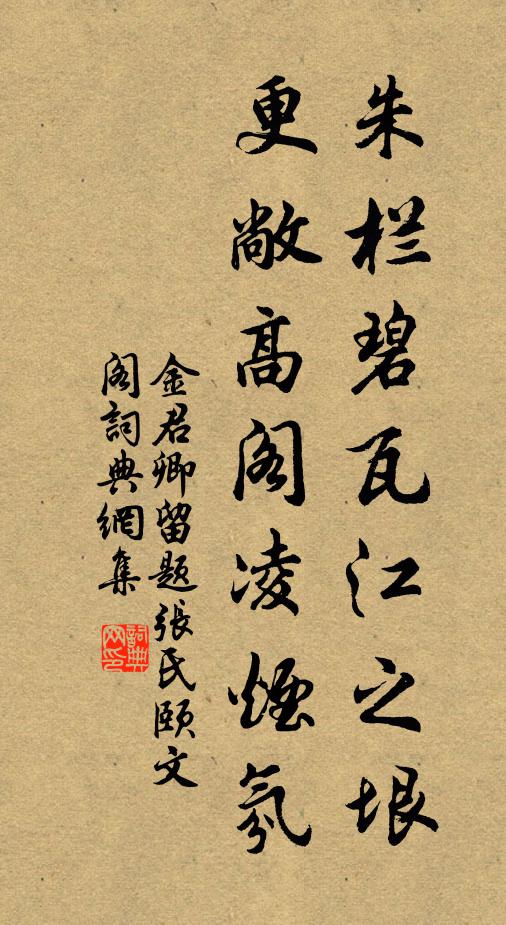 朱栏碧瓦江之垠
更敞高阁凌烟氛
金君卿留题張氏颐文
阁詞典網集
詞典网印